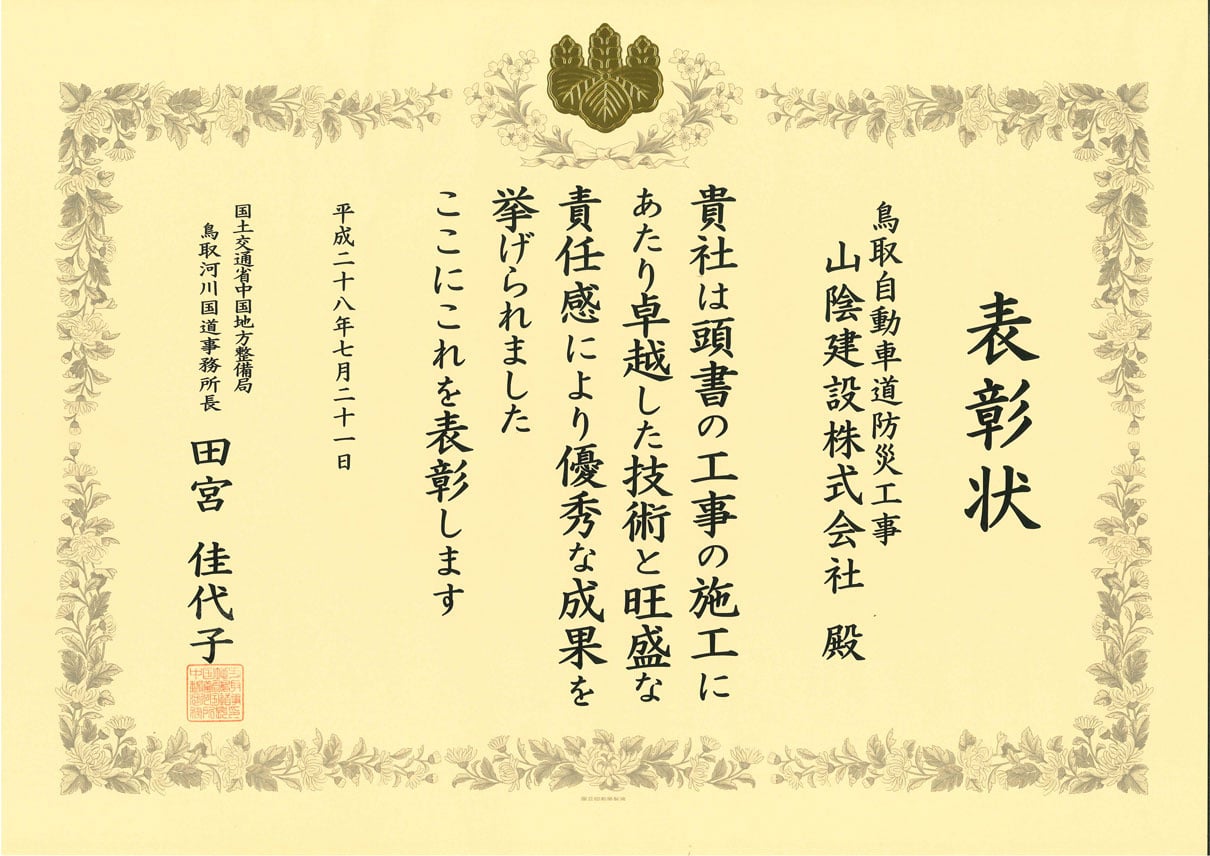 表彰状
鳥取自動車道防災工事
山陰建設株式会社 殿
貴社は頭書の工事の施工に
あたり卓越した技術と旺盛な
責任感により優秀な成果を
挙げられました
ここにこれを表彰します
平成二十八年七月二十一日
国土交通省中国地方整備局
鳥取河川国道事務所長 田宮 佳代子